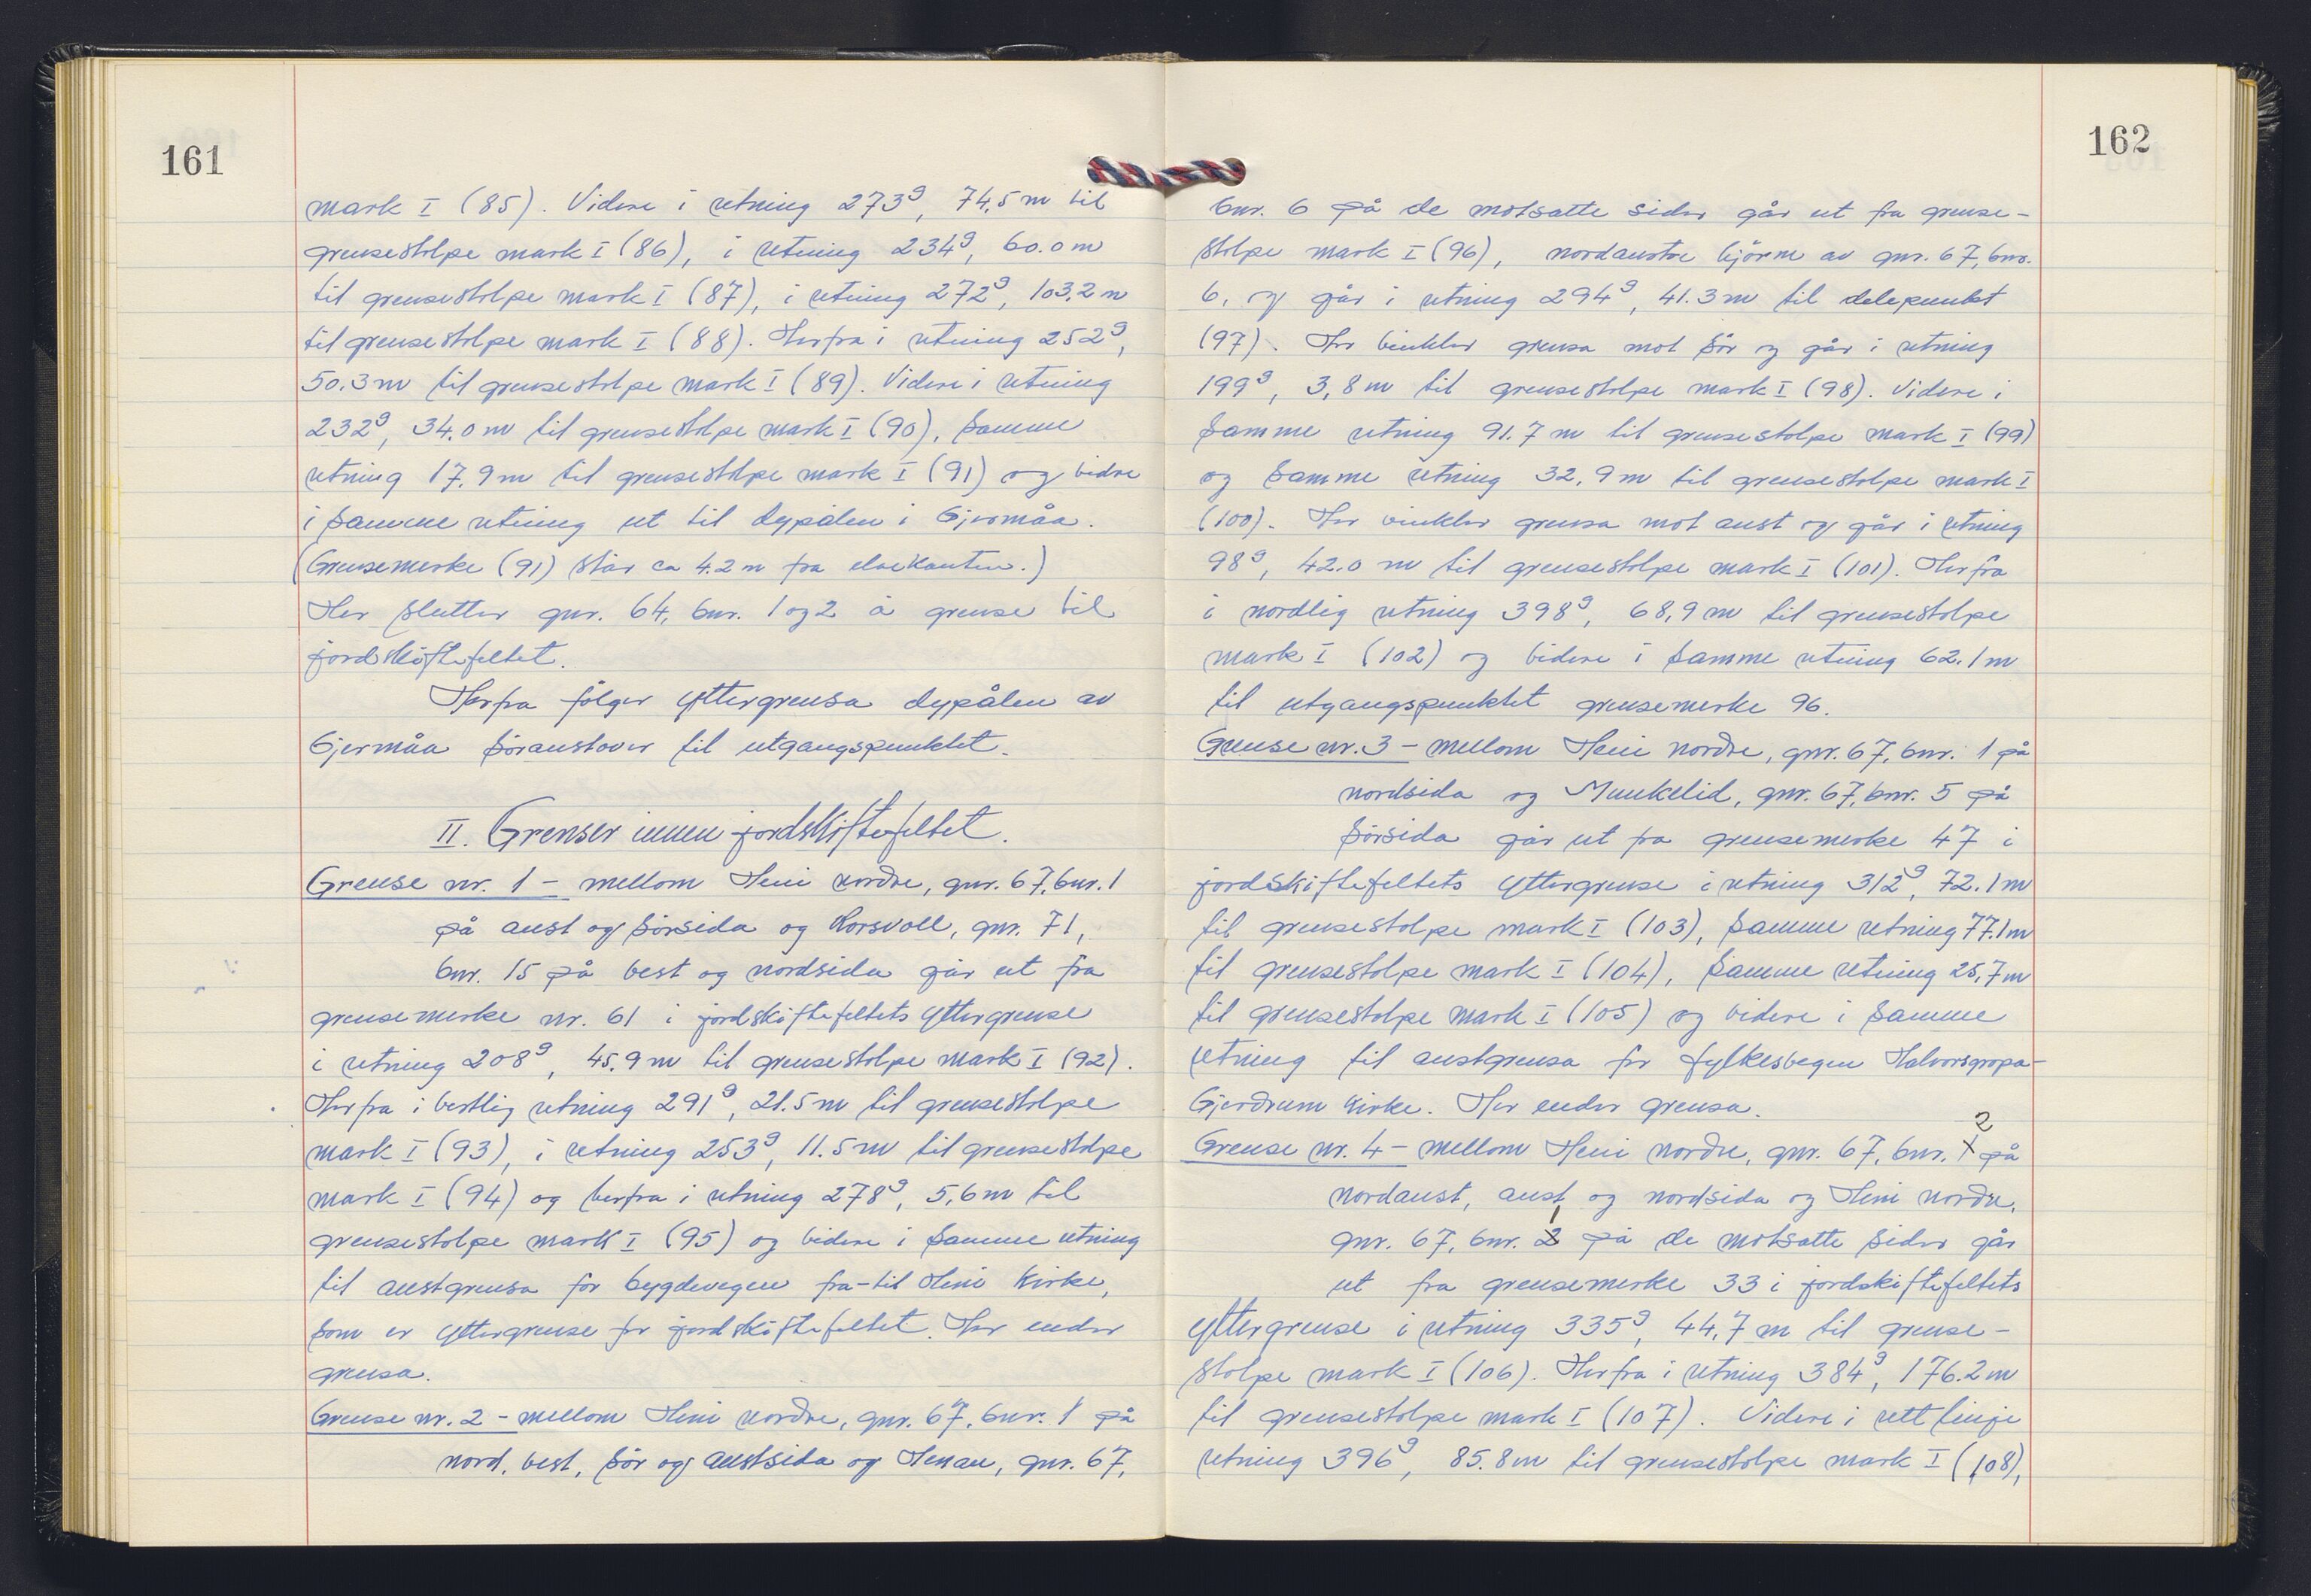 161
mark I (85). Videre i retning 273g, 74,5 m til
grensestolpe mark I (86), i retning 234g, 60.0 m
til grensestolpe mark I (87), i retning 272g, 103,2 m
til grensestolpe mark I (88). Herfra i retning 252g,
50.3 m til grensestolpe mark I (89). Videre i retning
232g, 34.0 m til grensestolpe mark I (90), samme
retning 17.9 m til grensestolpe mark I (91) og vidre
i samme retning ut til dypålen i Gjermåa.
(Grensemerke (91) står ca 4.2 m fra elvekanten.)
Her slutter gnr. 64, bnr. 1 og 2 å grense til
jordskiftefeltet.
Herfra følger yttergrensa dypålen av
Gjermåa søraustover til utgangspunktet.
II. Grenser innen jordskiftefeltet.
Grense nr. 1 - mellom Heni nordre, gnr. 67, bnr. 1
på aust og sørsida og Korsvoll, gnr. 71,
bnr. 15 på vest og nordsida går ut fra
grensemerke nr. 61 i jordskiftefeltets yttergrense
i retning 208g, 45.9 m til grensestolpe mark I (92).
Herfra i vestlig retning 291g, 21.5 m til grensestolpe
mark I (93), i retning 253g, 11.5 m til grensestolpe
mark I (94) og herfra i retning 278g, 5,6 m til
grensestolpe mark I (95) og videre i samme retning
til austgrensa for bygdevegen fra-til Heni kirke,
som er yttergrense for jordskiftefeltet. Her ender
grensa.
Grense nr. 2 - mellom Heni nordre, gnr. 67, bnr. 1 på
nord, vest, sør og austsida og Henau, gnr. 67,
162
bnr. 6 på de motsatte sider går ut fra grense-
stolpe mark I (96), nordaustre hjørne av gnr. 67, bnr.
6, og går i retning 294g, 41.3 m til delepunkt
(97). Her vinkler grensa mot sør og går i retning
199g, 3,8 m til grensestolpe mark I (98). Videre i
samme retning 91.7 m til grensestolpe mark I (99)
og samme retning 32,9 m til grensestolpe mark I
(100). Her vinkler grensa mot aust og går i retning
98g, 42.0 m til grensestolpe mark I (101). Herfra
i nordlig retning 398g, 68,9 m til grensestolpe
mark I (102) og videre i samme retning 62.1 m
til utgangspunktet grensemerke 96.
Grense nr. 3 - mellom Heni nordre, gnr. 67, bnr. 1 på
nordsida og Munkelid, gnr. 67, bnr. 5 på
sørsida går ut fra grensemerke 47 i
jordskiftefeltets yttergrense i retning 312g, 72.1 m
til grensestolpe mark I (103), samme retning 77.1 m
til grensestolpe mark I (104), samme retning 25,7 m
til grensestolpe mark I (105) og videre i samme
retning til austgrensa for fylkesvegen Halvorsgropa-
Gjerdrum kirke. Her ender grensa.
Grense nr. 4 - mellom Heni nordre, gnr. 67, bnr. 2 på
nordaust, aust og nordsida og Heni nordre,
gnr. 67, bnr. 1 på de motsatte sider går
ut fra grensemerke 33 i jordskiftefeltets
yttergrense i retning 335g, 44,7 m til grense-
stolpe mark I (106). Herfra i retning 384g, 176.2 m
til grensestolpe mark I (107). Videre i rett linje
retning 396g, 85.8 m til grensestolpe mark I (108),